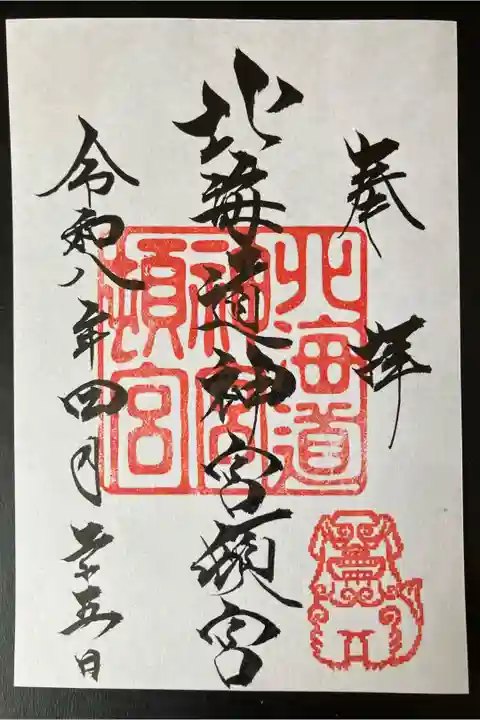 奉拝
北海道神宮頓宮
令和八年四月五日
北海道
神宮
頓宮